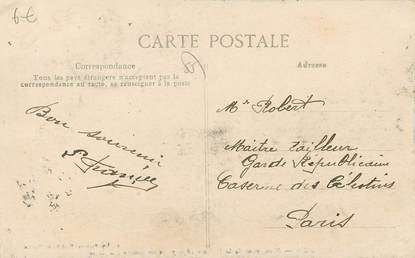 6€
CARTE POSTALE
Correspondance
Tous les pays étrangers n'acceptent pas la
correspondance au recto, se renseigner à la poste
85
Adresse
Bon souvenir
Mr Robert
Maître tailleur
Garde Républicaine
Caserne des Célestins
Paris